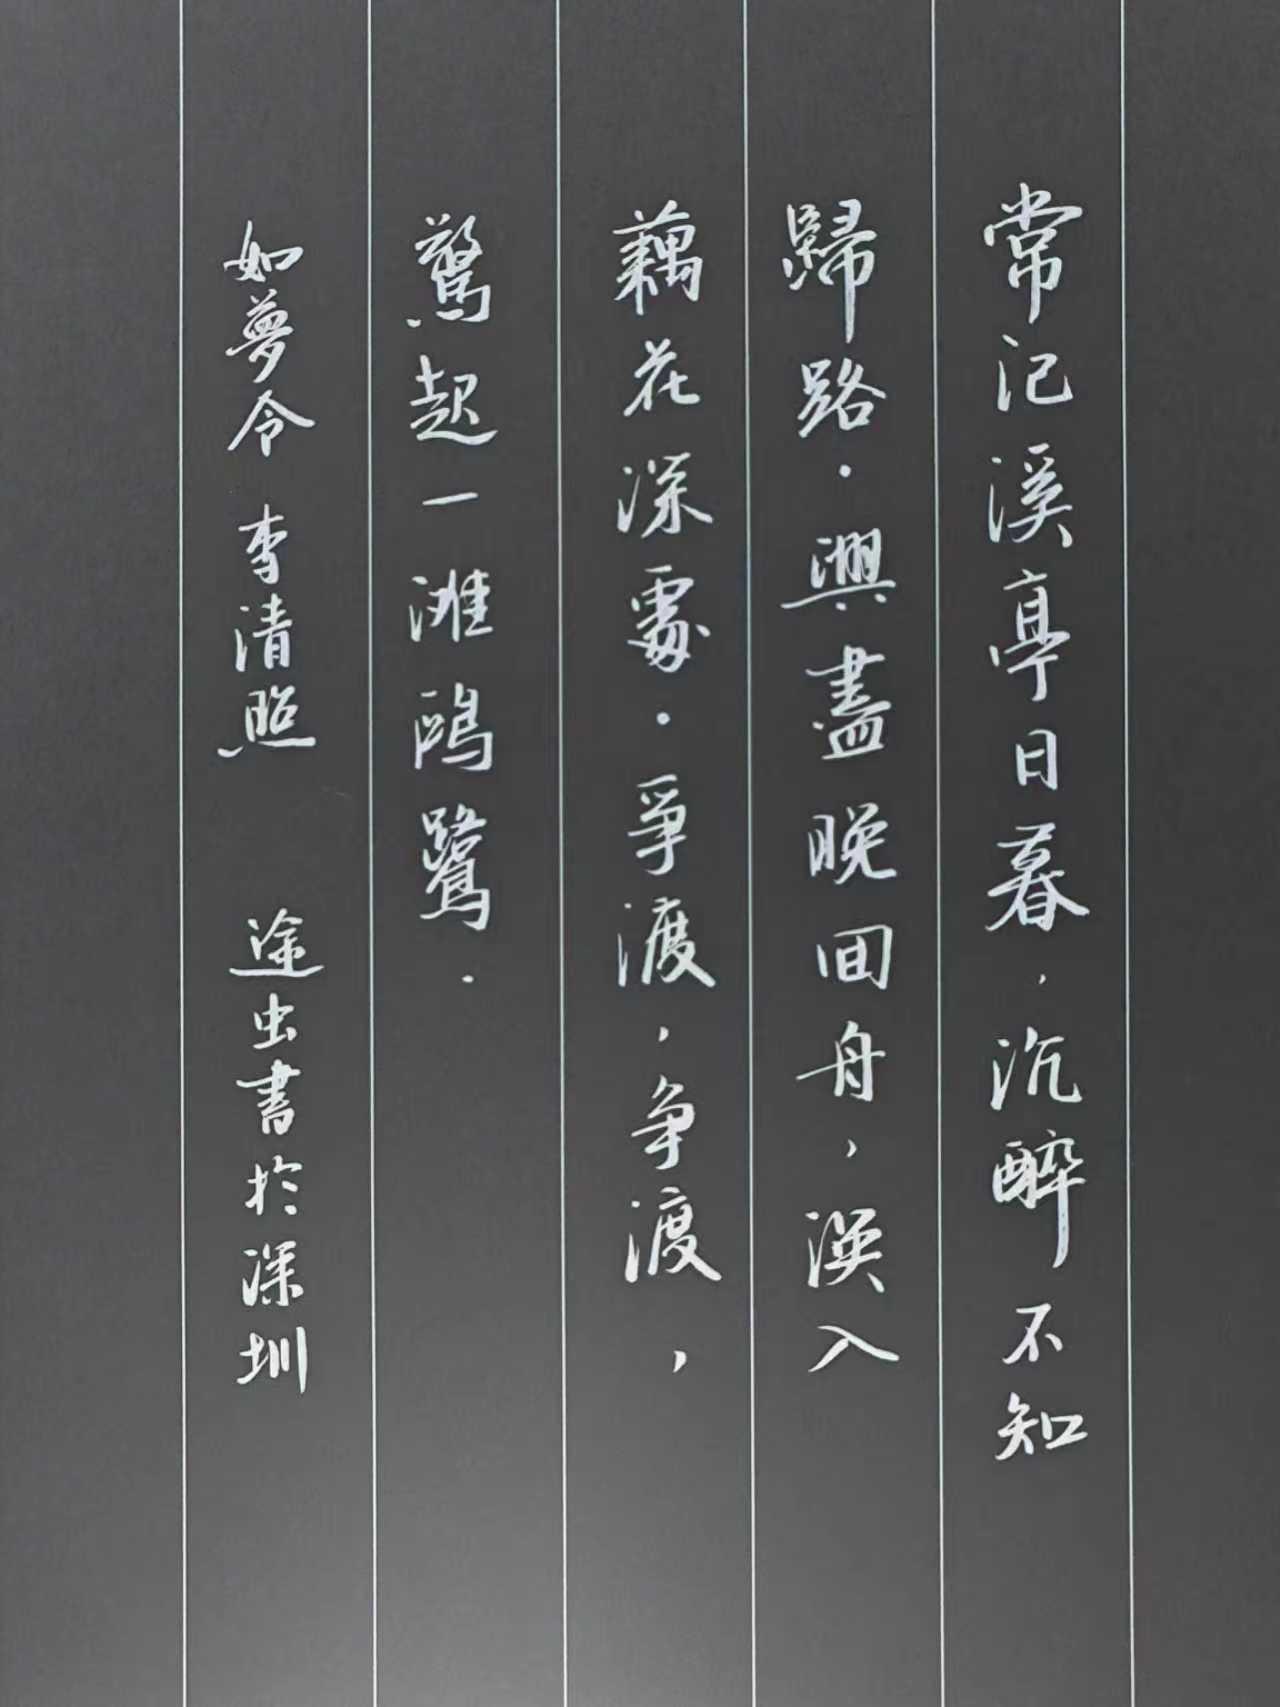 常记溪亭日暮，沉醉不知
歸路．興盡晚回舟，誤入
藕花深處．爭渡，争渡，
驚起一滩鷗鷺．
如夢令 李清照 途虫書於深圳